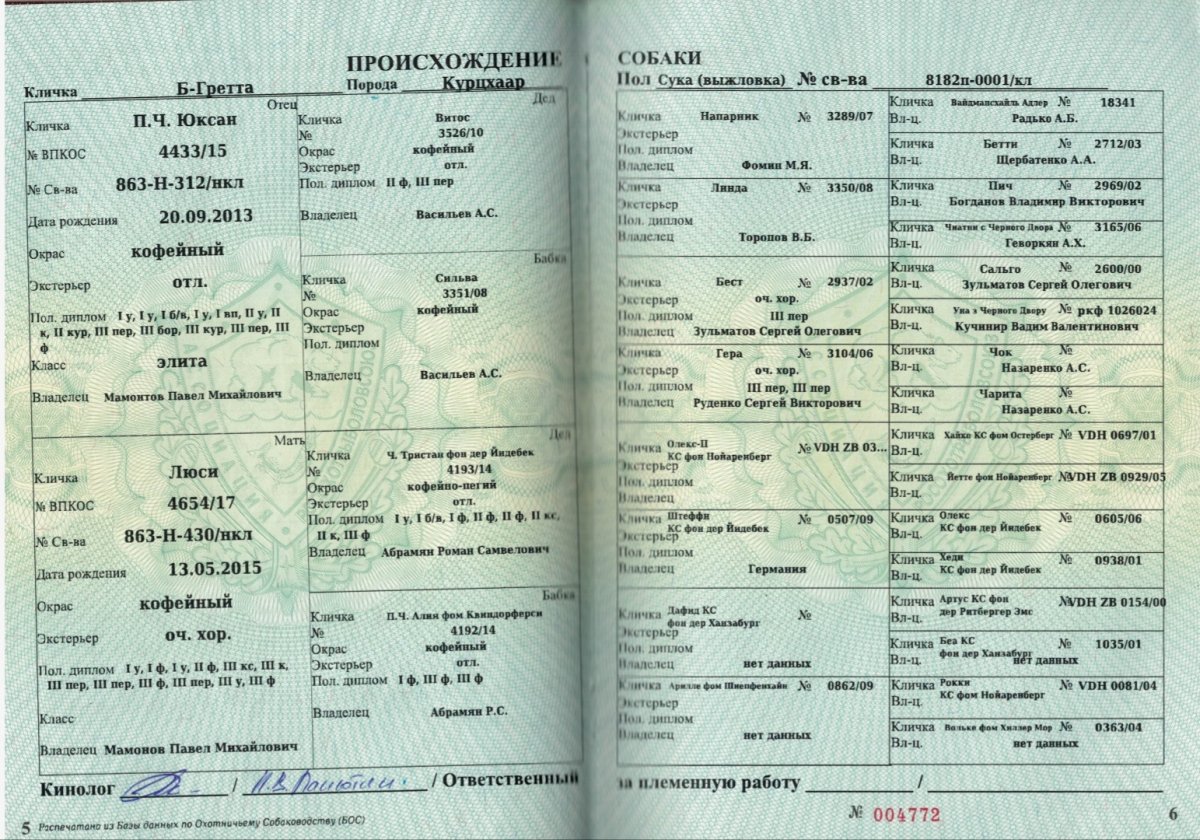 ПРОИСХОЖДЕНИЕ
Кличка Б-Гретта Порода Курцхаар
Отец
Кличка П.Ч. Юксан
№ ВПКОС 4433/15
№ Св-ва 863-Н-312/нкл
Дата рождения 20.09.2013
Окрас кофейный
Экстерьер отл.
Пол. диплом I у, I у, I б/в, I у, I вп, II у, II
к, II кур, III пер, III бор, III кур, III пер, III
ф
Класс элита
Владелец Мамонтов Павел Михайлович
Дед
Кличка Витос
№ 3526/10
Окрас кофейный
Экстерьер отл.
Пол. диплом II ф, III пер
Владелец Васильев А.С.
Бабка
Кличка Сильва
№ 3351/08
Окрас кофейный
Экстерьер
Пол. диплом
Владелец Васильев А.С.
Мать
Кличка Люси
№ ВПКОС 4654/17
№ Св-ва 863-Н-430/нкл
Дата рождения 13.05.2015
Окрас кофейный
Экстерьер оч. хор.
Пол. диплом I у, I ф, I у, II ф, III кс, III к,
III пер, III пер, III ф, III пер, III у, III ф
Класс
Владелец Мамонов Павел Михайлович
Дед
Кличка Ч. Тристан фон дер Йидебек
№ 4193/14
Окрас кофейно-пегий
Экстерьер отл.
Пол. диплом I у, I б/в, I ф, II ф, II ф, II кс,
II к, III ф
Владелец Абрамян Роман Самвелович
Бабка
Кличка П.Ч. Алия фом Квиндорферси
№ 4192/14
Окрас кофейный
Экстерьер отл.
Пол. диплом I ф, III ф, III ф
Владелец Абрамян Р.С.
Кинолог / / Ответственный
5 Распечатано из Базы данных по Охотничьему Собаководству (БОС)
СОБАКИ
Пол Сука (выжловка) № св-ва 8182п-0001/кл
Кличка Напарник № 3289/07
Экстерьер
Пол. диплом
Владелец Фомин М.Я.
Кличка Линда № 3350/08
Экстерьер
Пол. диплом
Владелец Торопов В.Б.
Кличка Бест № 2937/02
Экстерьер оч. хор.
Пол. диплом III пер
Владелец Зульматов Сергей Олегович
Кличка Гера № 3104/06
Экстерьер оч. хор.
Пол. диплом III пер, III пер
Владелец Руденко Сергей Викторович
Кличка Олекс-II
КС фон Нойаренберг № VDH ZB 03...
Экстерьер
Пол. диплом
Владелец
Кличка Штеффи
КС фон дер Йидебек № 0507/09
Экстерьер
Пол. диплом
Владелец Германия
Кличка Дафид КС
фон дер Ханзабург №
Экстерьер
Пол. диплом
Владелец нет данных
Кличка Арилле фом Шнепфенхайн № 0862/09
Экстерьер
Пол. диплом
Владелец нет данных
Кличка Вайдмансхайль Адлер № 18341
Вл-ц. Радько А.Б.
Кличка Бетти № 2712/03
Вл-ц. Щербатенко А.А.
Кличка Пич № 2969/02
Вл-ц. Богданов Владимир Викторович
Кличка Чиатни с Черного Двора № 3165/06
Вл-ц. Геворкян А.Х.
Кличка Сальго № 2600/00
Вл-ц. Зульматов Сергей Олегович
Кличка Уна з Черного Двору № ркф 1026024
Вл-ц. Кучинир Вадим Валентинович
Кличка Чок №
Вл-ц. Назаренко А.С.
Кличка Чарита №
Вл-ц. Назаренко А.С.
Кличка Хайко КС фом Остерберг № VDH 0697/01
Вл-ц.
Кличка Йетте фон Нойаренберг № VDH ZB 0929/05
Вл-ц.
Кличка Олекс
КС фон дер Йидебек № 0605/06
Вл-ц.
Кличка Хеди
КС фон дер Йидебек № 0938/01
Вл-ц.
Кличка Артус КС фон
дер Ритбергер Эмс № VDH ZB 0154/00
Вл-ц.
Кличка Беа КС
фон дер Ханзабург № 1035/01
Вл-ц. нет данных
Кличка Рокки
КС фом Нойаренберг № VDH 0081/04
Вл-ц.
Кличка Вольке фом Хиллер Мор № 0363/04
Вл-ц. нет данных
за племенную работу /
№ 004772
6